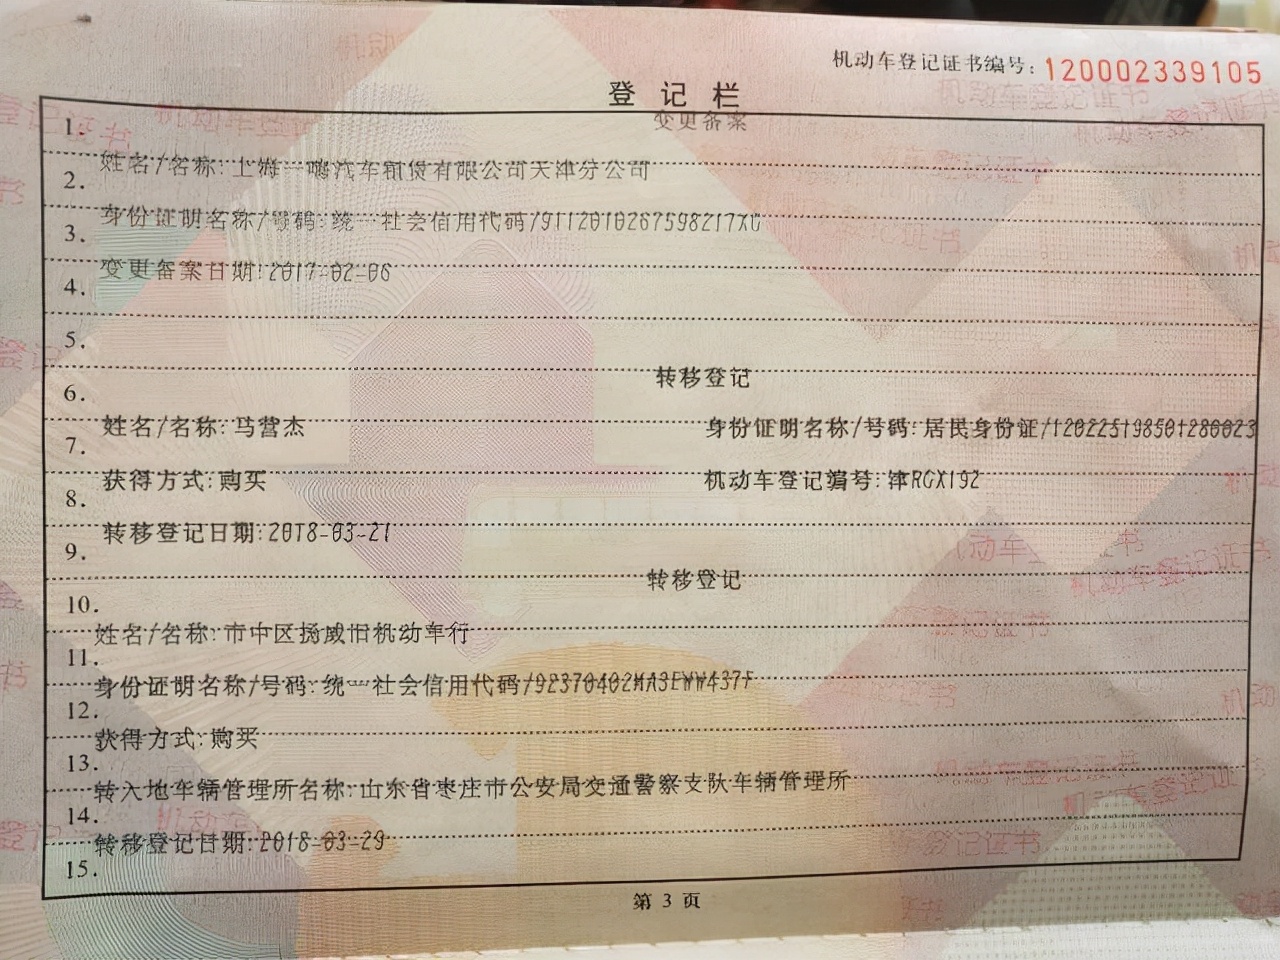 机动车登记证书编号：120002339105
登记栏
1.
变更备案
姓名/名称:上海一嗨汽车租赁有限公司天津分公司
2.
身份证明名称/号码:统一社会信用代码/91120102675982177XG
3.
变更备案日期:2017-02-06
4.
5.
转移登记
6.
姓名/名称:马营杰 身份证明名称/号码:居民身份证/120225198501280023
7.
获得方式:购买 机动车登记编号:津RGX192
8.
转移登记日期:2018-03-21
9.
转移登记
10.
姓名/名称:市中区扬威旧机动车行
11.
身份证明名称/号码:统一社会信用代码/92370402MA3EWW437F
12.
获得方式:购买
13.
转入地车辆管理所名称:山东省枣庄市公安局交通警察支队车辆管理所
14.
转移登记日期:2018-03-29
15.
第 3 页